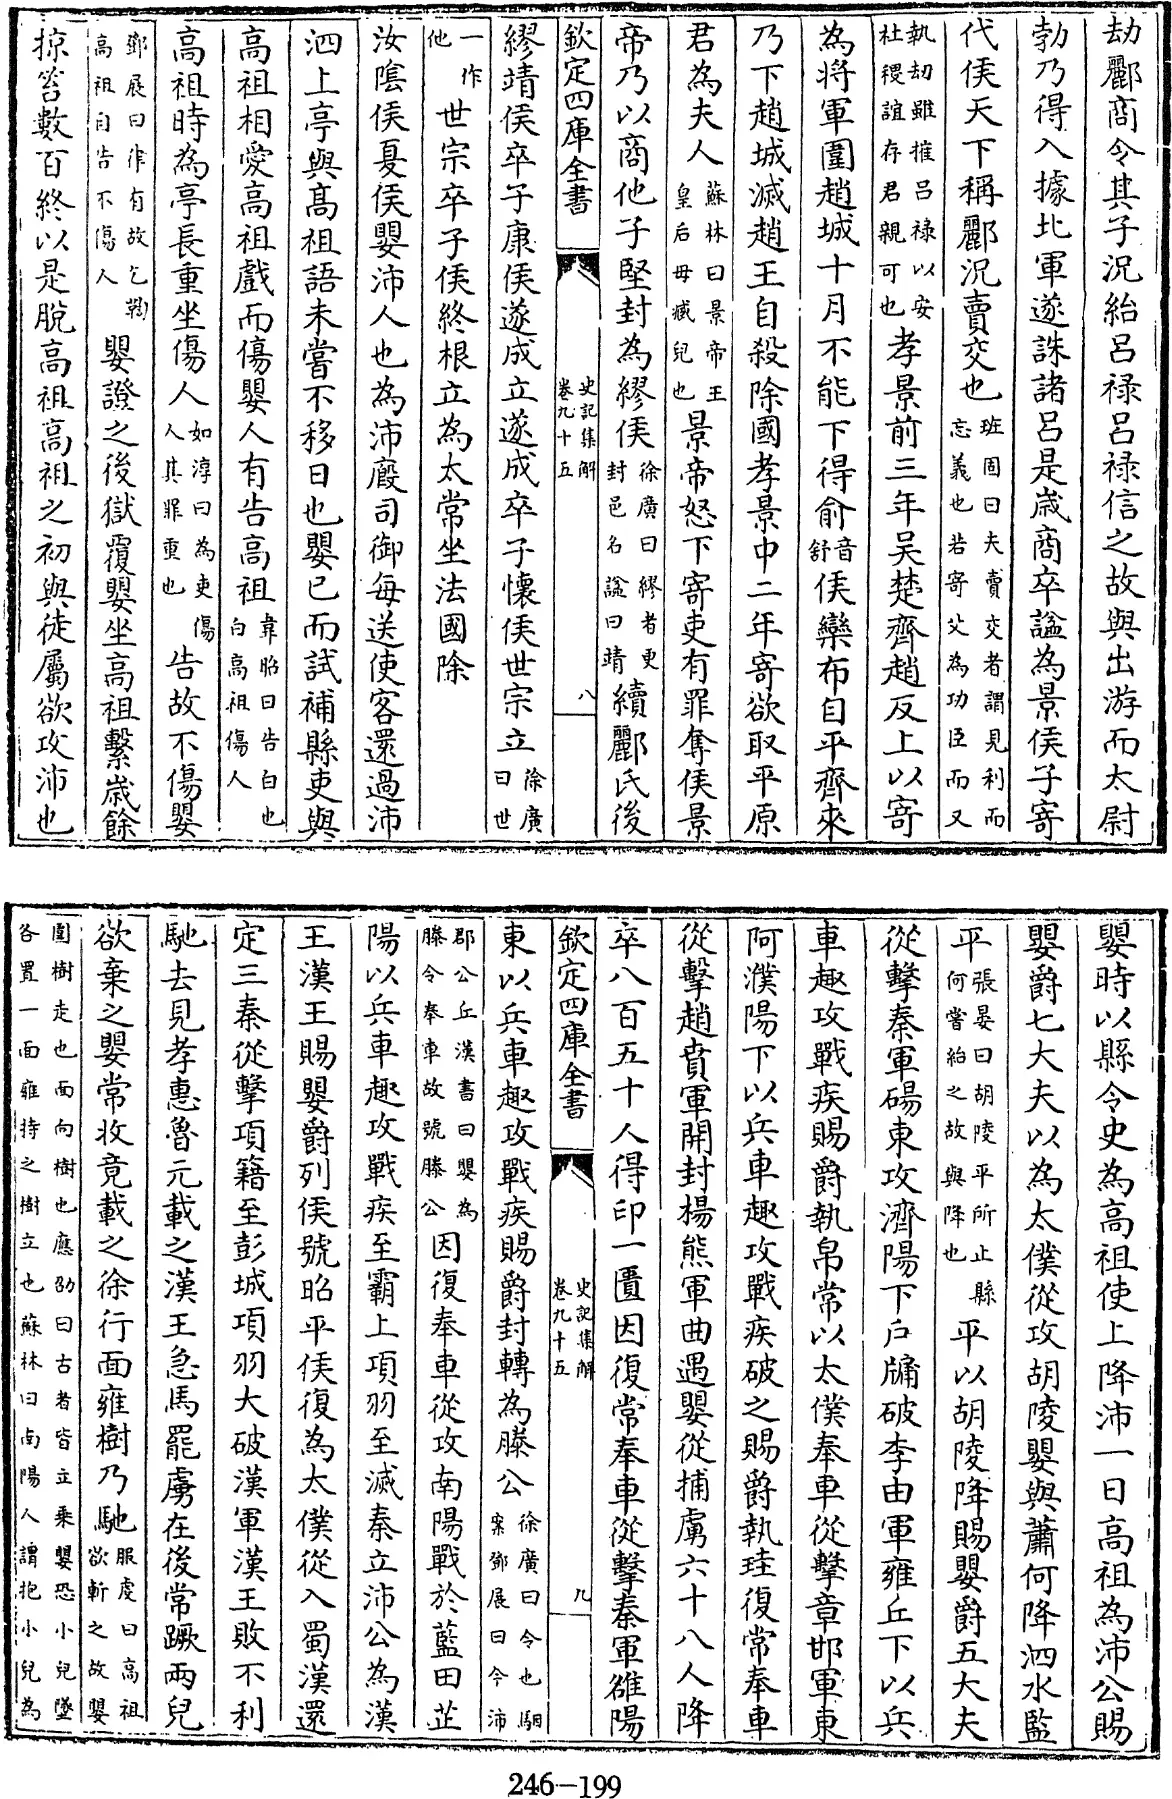 劫酈商令其子況紿呂祿呂祿信之故與出游而太尉
勃乃得入據北軍遂誅諸呂是歲商卒諡為景侯子寄
代侯天下稱酈況賣交也班固曰夫賣交者謂見利而忘義也若寄父為功臣而又
執劫雖摧呂祿以安社稷誼存君親可也孝景前三年吳楚齊趙反上以寄
為將軍圍趙城十月不能下得俞音舒侯欒布自平齊來
乃下趙城滅趙王自殺除國孝景中二年寄欲取平原
君為夫人蘇林曰景帝王皇后母臧兒也景帝怒下寄吏有罪奪侯景
帝乃以商他子堅封為繆侯徐廣曰繆者更封邑名諡曰靖續酈氏後
欽定四庫全書 史記集解卷九十五 八
繆靖侯卒子康侯遂成立遂成卒子懷侯世宗立徐廣曰世
一作他世宗卒子侯終根立為太常坐法國除
汝陰侯夏侯嬰沛人也為沛廄司御每送使客還過沛
泗上亭與高祖語未嘗不移日也嬰已而試補縣吏與
高祖相愛高祖戲而傷嬰人有告高祖韋昭曰告白也白高祖傷人
高祖時為亭長重坐傷人如淳曰為吏傷人其罪重也告故不傷嬰
鄧展曰律有故乞鞫高祖自告不傷人嬰證之後獄覆嬰坐高祖繫歲餘
掠笞數百終以是脫高祖高祖之初與徒屬欲攻沛也
嬰時以縣令史為高祖使上降沛一日高祖為沛公賜
嬰爵七大夫以為太僕從攻胡陵嬰與蕭何降泗水監
平張晏曰胡陵平所止縣何嘗紿之故與降也平以胡陵降賜嬰爵五大夫
從擊秦軍碭東攻濟陽下戶牖破李由軍雍丘下以兵
車趣攻戰疾賜爵執帛常以太僕奉車從擊章邯軍東
阿濮陽下以兵車趣攻戰疾破之賜爵執珪復常奉車
從擊趙賁軍開封楊熊軍曲遇嬰從捕虜六十八人降
卒八百五十人得印一匱因復常奉車從擊秦軍雒陽
欽定四庫全書 史記集解卷九十五 九
東以兵車趣攻戰疾賜爵封轉為滕公徐廣曰令也駰案鄧展曰今沛
郡公丘漢書曰嬰為滕令奉車故號滕公因復奉車從攻南陽戰於藍田芷
陽以兵車趣攻戰疾至霸上項羽至滅秦立沛公為漢
王漢王賜嬰爵列侯號昭平侯復為太僕從入蜀漢還
定三秦從擊項籍至彭城項羽大破漢軍漢王敗不利
馳去見孝惠魯元載之漢王急馬罷虜在後常蹶兩兒
欲棄之嬰常收竟載之徐行面雍樹乃馳服虔曰高祖欲斬之故嬰
圍樹走也面向樹也應劭曰古者皆立乘嬰恐小兒墜各置一面雍持之樹立也蘇林曰南陽人謂抱小兒為
246-199